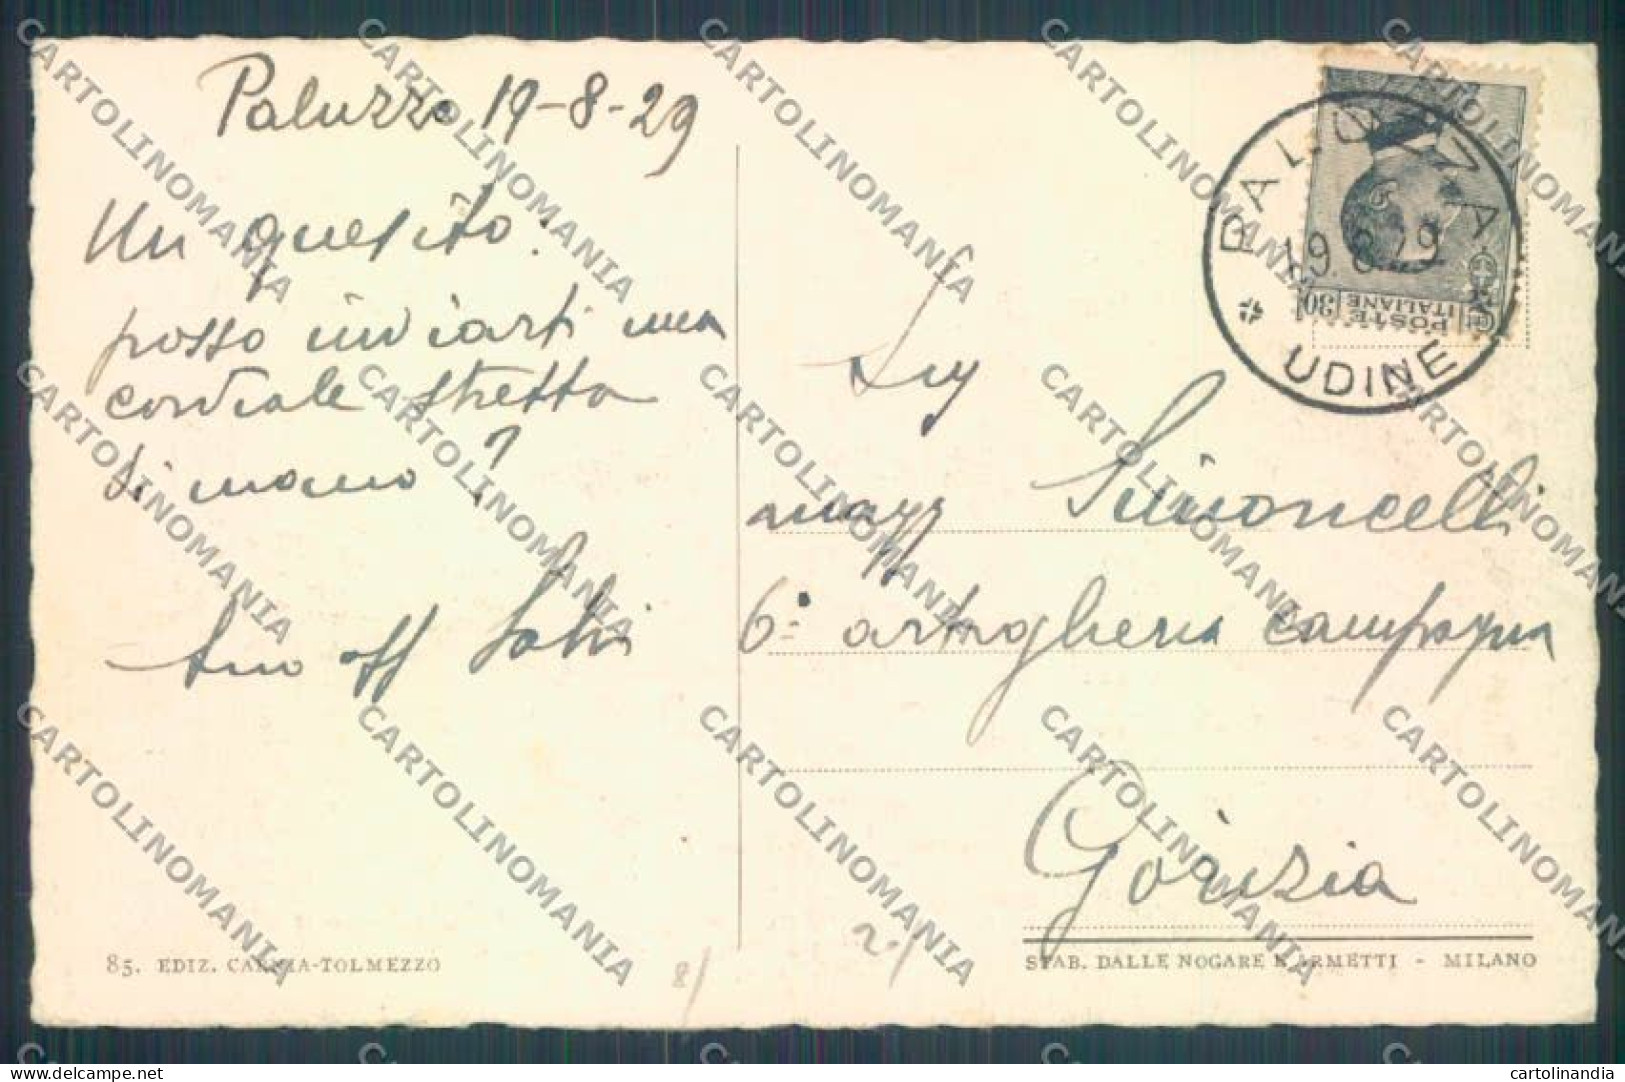 Paluzza 19-8-29
Un quesito:
posso inviarti una
cordiale stretta
di mano?
Suo aff Sabi
Sig
magg Simoncelli
6° artiglieria campagna
Gorizia
PALUZZA
19 8 29
UDINE
30 POSTE ITALIANE
85. EDIZ. CARNIA-TOLMEZZO
STAB. DALLE NOGARE E ARMETTI - MILANO
CARTOLINOMANIA
www.delcampe.net
cartolinandia